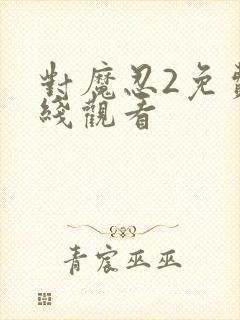 對魔忍2免費
綫觀看
青宸巫巫